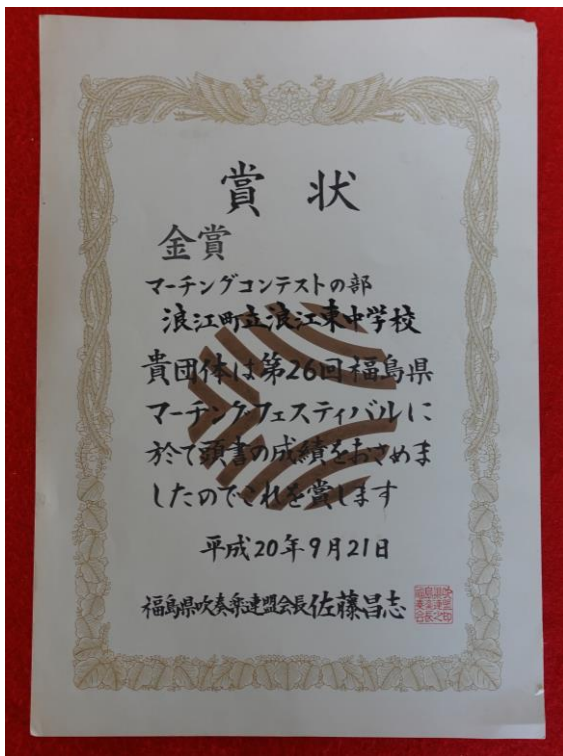 賞状
金賞
マーチングコンテストの部
浪江町立浪江東中学校
貴団体は第26回福島県
マーチングフェスティバルに
於て頭書の成績をおさめま
したのでこれを賞します
平成20年9月21日
福島県吹奏楽連盟会長佐藤昌志